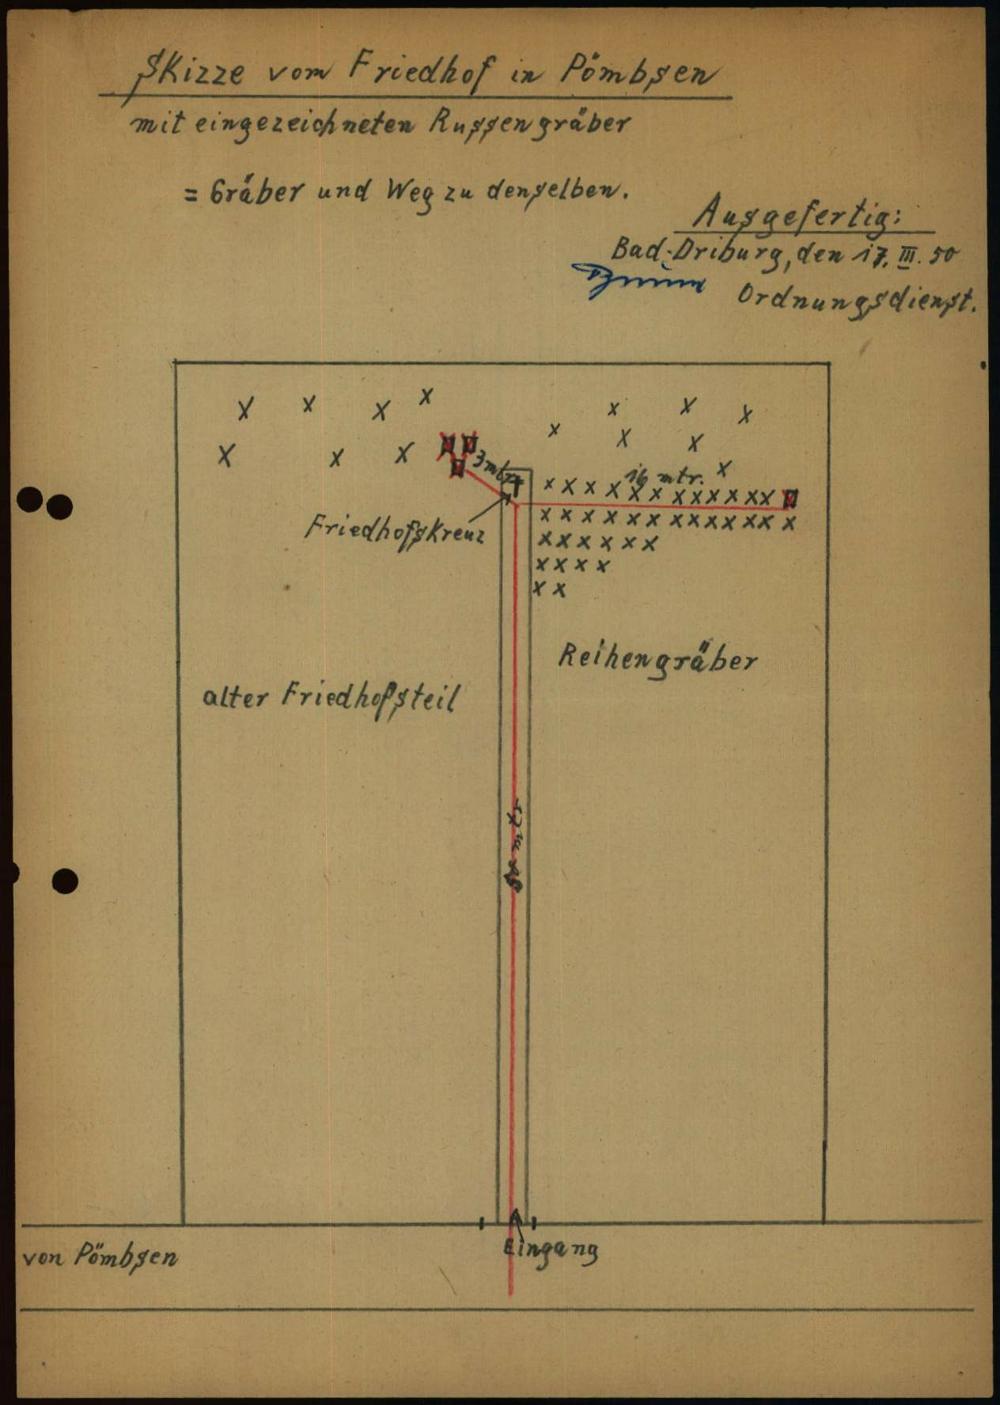 Skizze vom Friedhof in Pömbsen
mit eingezeichneten Russengräber
= Gräber und Weg zu denselben.
Ausgefertig:
Bad-Driburg, den 17. III. 50
Ordnungsdienst.
3 mtr.
16 mtr.
Friedhofskreuz
Reihengräber
alter Friedhofsteil
von Pömbsen
Eingang